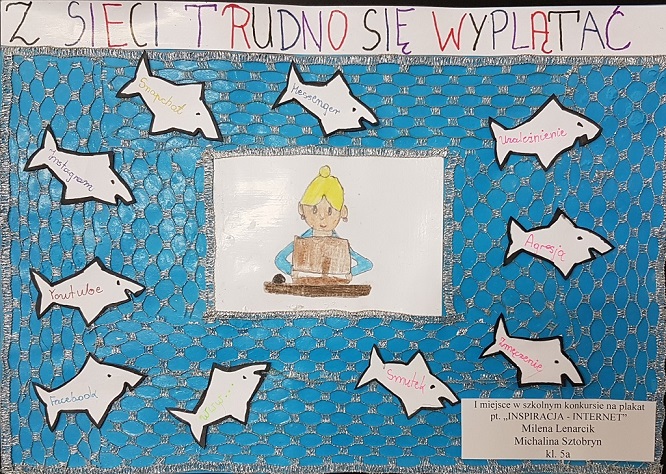 Z SIECI TRUDNO SIĘ WYPLĄTAĆ
Snapchat
Messenger
Uzależnienie
instagram
Agresja
Youtube
Zmęczenie
Facebook
www...
Smutek
I miejsce w szkolnym konkursie na plakat
pt. „INSPIRACJA - INTERNET”
Milena Lenarcik
Michalina Sztobryn
kl. 5a